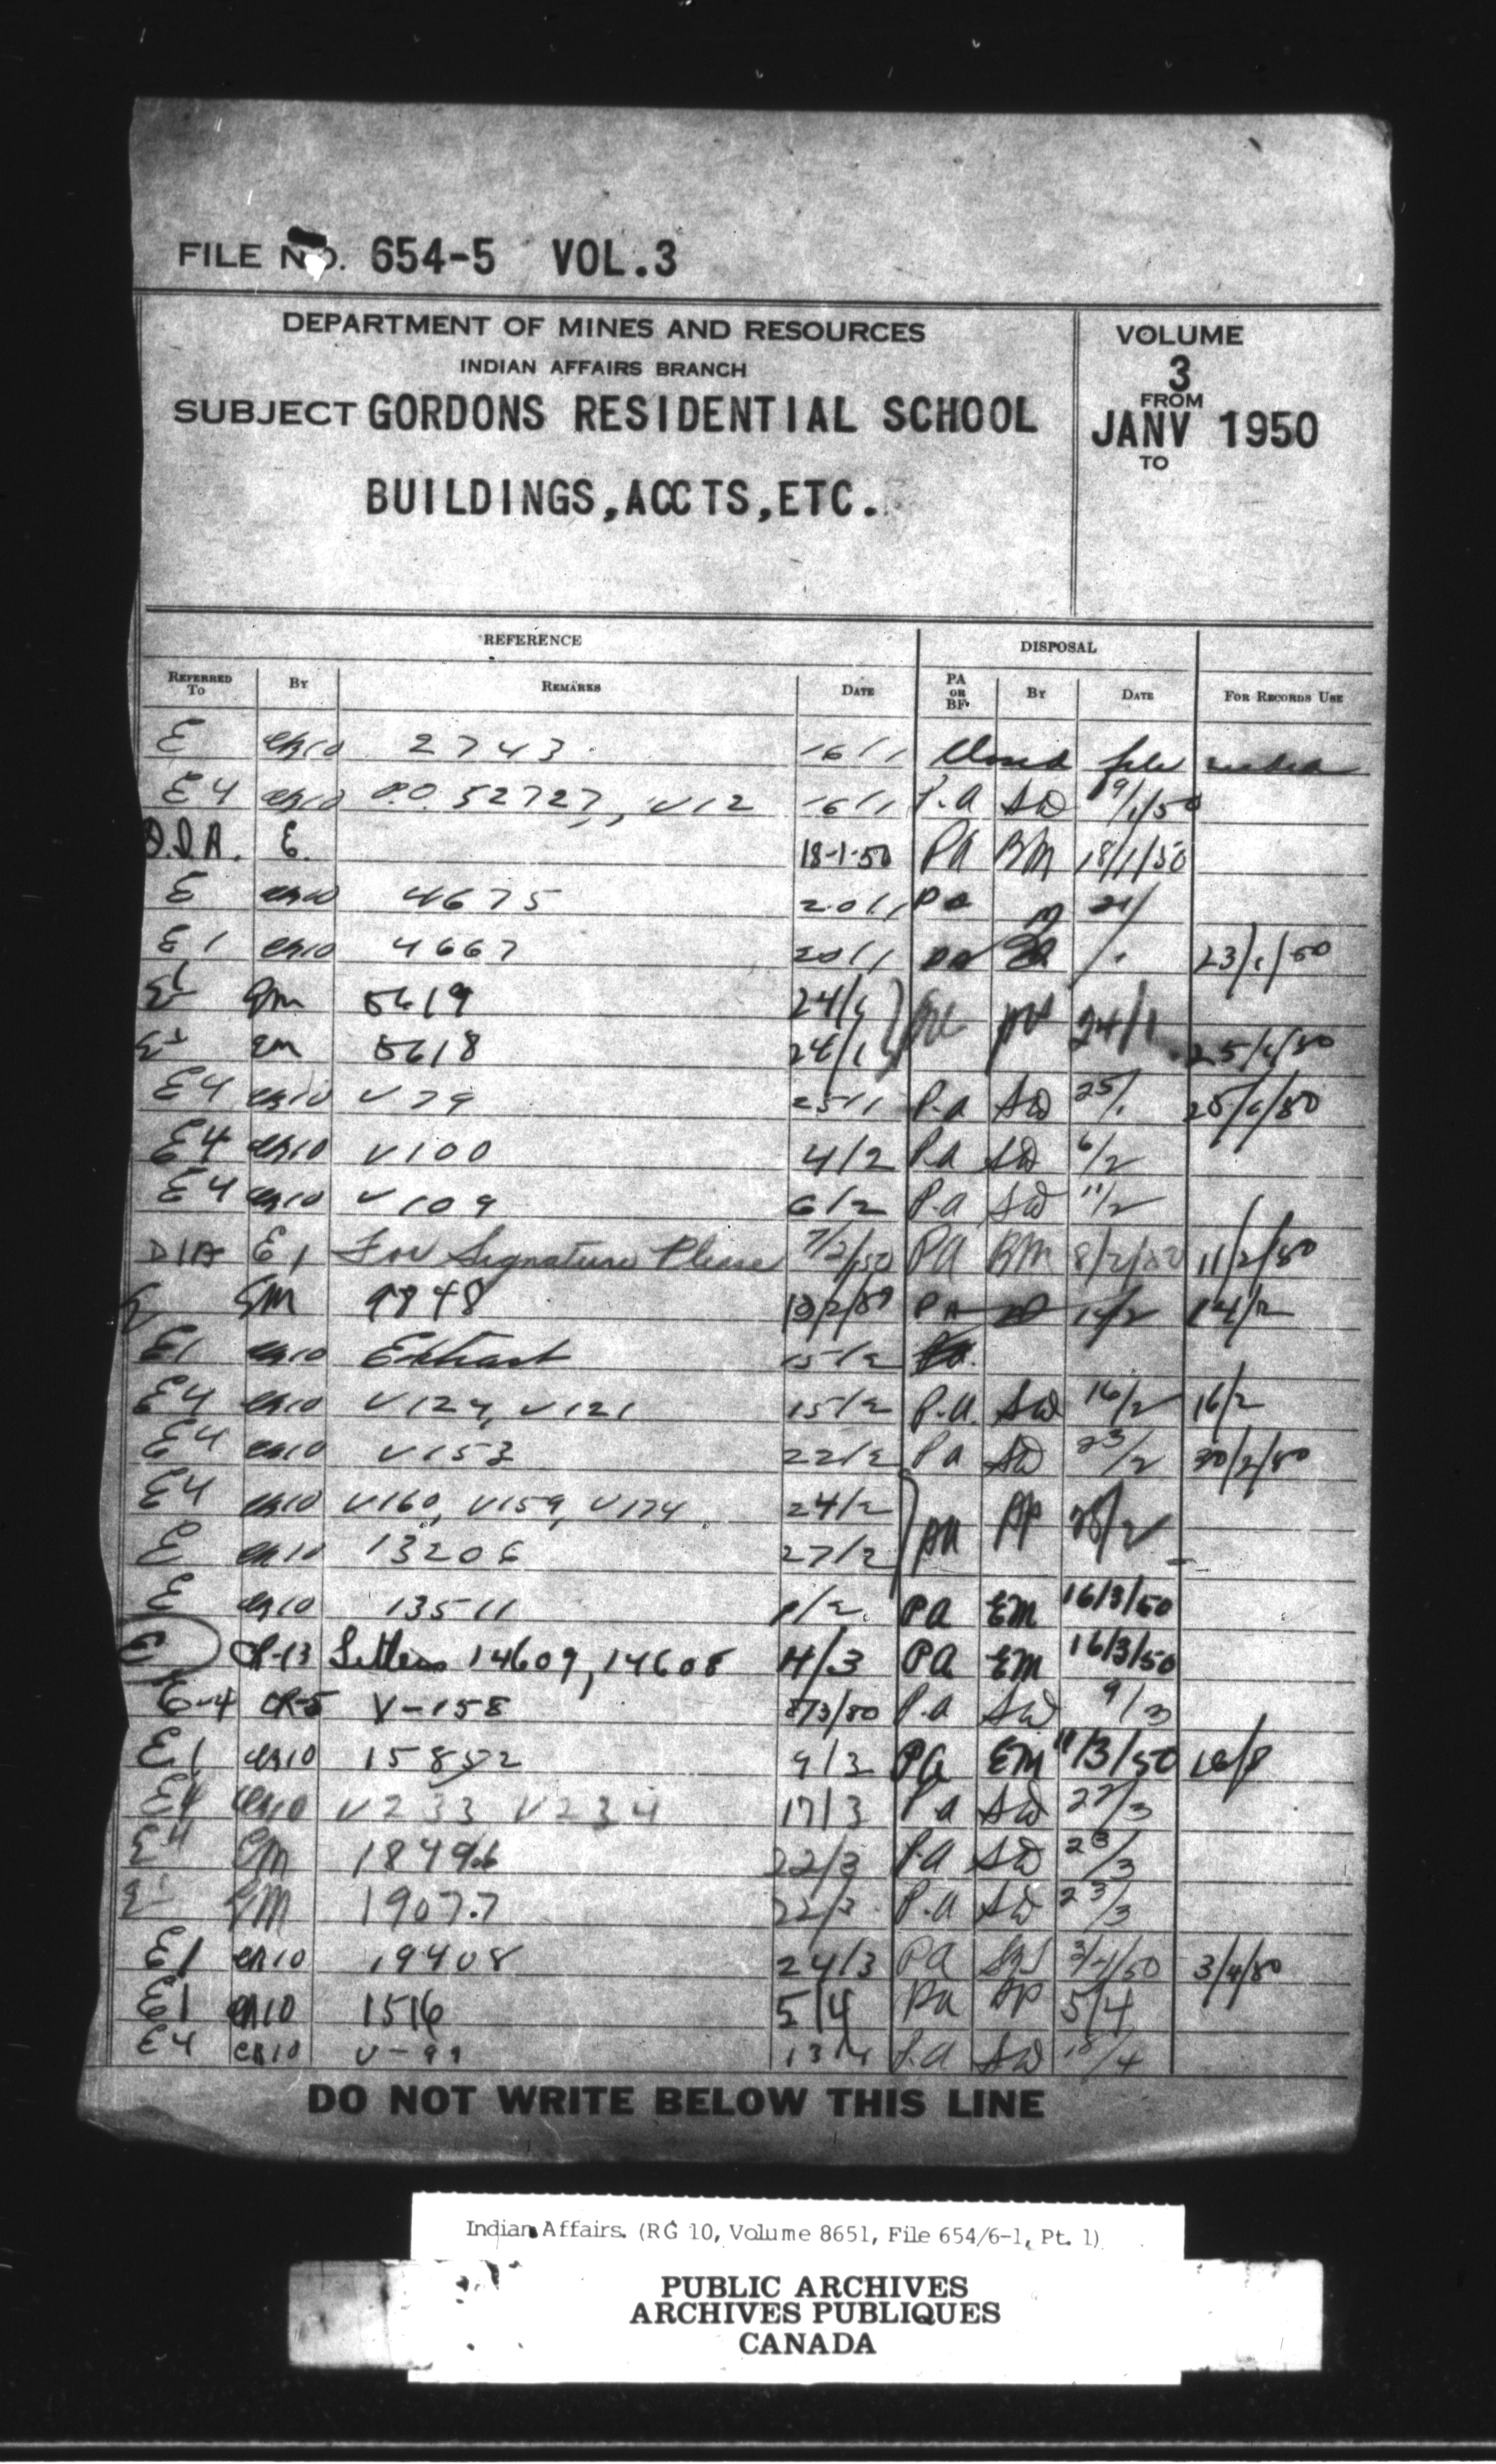 FILE NO. 654-5 VOL.3
DEPARTMENT OF MINES AND RESOURCES
INDIAN AFFAIRS BRANCH
SUBJECT GORDONS RESIDENTIAL SCHOOL
BUILDINGS,ACCTS,ETC.
VOLUME
3
FROM
JANV 1950
TO
REFERENCE DISPOSAL
REFERRED TO BY REMARKS DATE PA OR BF. BY DATE FOR RECORDS USE
E CR10 2743 16/1 Closed file
E4 CR10 P.O. 52727, V12 16/1 P.A SW 19/1/50
D.I.A. E. 18-1-50 PA BM 18/1/50
E CR10 4675 20/1 PA
E1 CR10 4667 20/1 23/1/50
GM 5619 24/1
GM 5618 24/1 24/1 25/1/50
E4 CR10 V79 25/1 P.A SW 25/1 25/1/50
E4 CR10 V100 4/2 P.A SW 6/2
E4 CR10 V109 6/2 P.A SW 11/2
DIA E1 For Signature Please 7/2/50 PA BM 8/2/50 11/2/50
GM 9948 13/2/50 PA 14/2 14/2
E1 CR10 Extract 15/2
E4 CR10 V124, V121 15/2 P.A. SW 16/2 16/2
E4 CR10 V153 22/2 PA SW 23/2
E4 CR10 V160, V159, V174 24/2
E CR10 13206 27/2 PA
E CR10 13511 1/2 PA EM 16/3/50
E CR-13 Letters 14609, 14608 4/3 PA EM 16/3/50
E-4 CR-5 V-158 8/3/50 P.A SW 9/3
E1 CR10 15852 9/3 PA EM 11/3/50
E4 CR10 V233 V234 17/3 PA SW 22/3
E4 GM 18496 22/3 P.A SW 23/3
GM 19077 22/3 P.A SW 23/3
E1 CR10 19408 24/3 PA 3/4/50 3/4/50
E1 CR10 1516 5/4 PA 5/4
E4 CR10 V-99 13/4 P.A SW 18/4
DO NOT WRITE BELOW THIS LINE
Indian Affairs. (RG 10, Volume 8651, File 654/6-1, Pt. 1)
PUBLIC ARCHIVES
ARCHIVES PUBLIQUES
CANADA